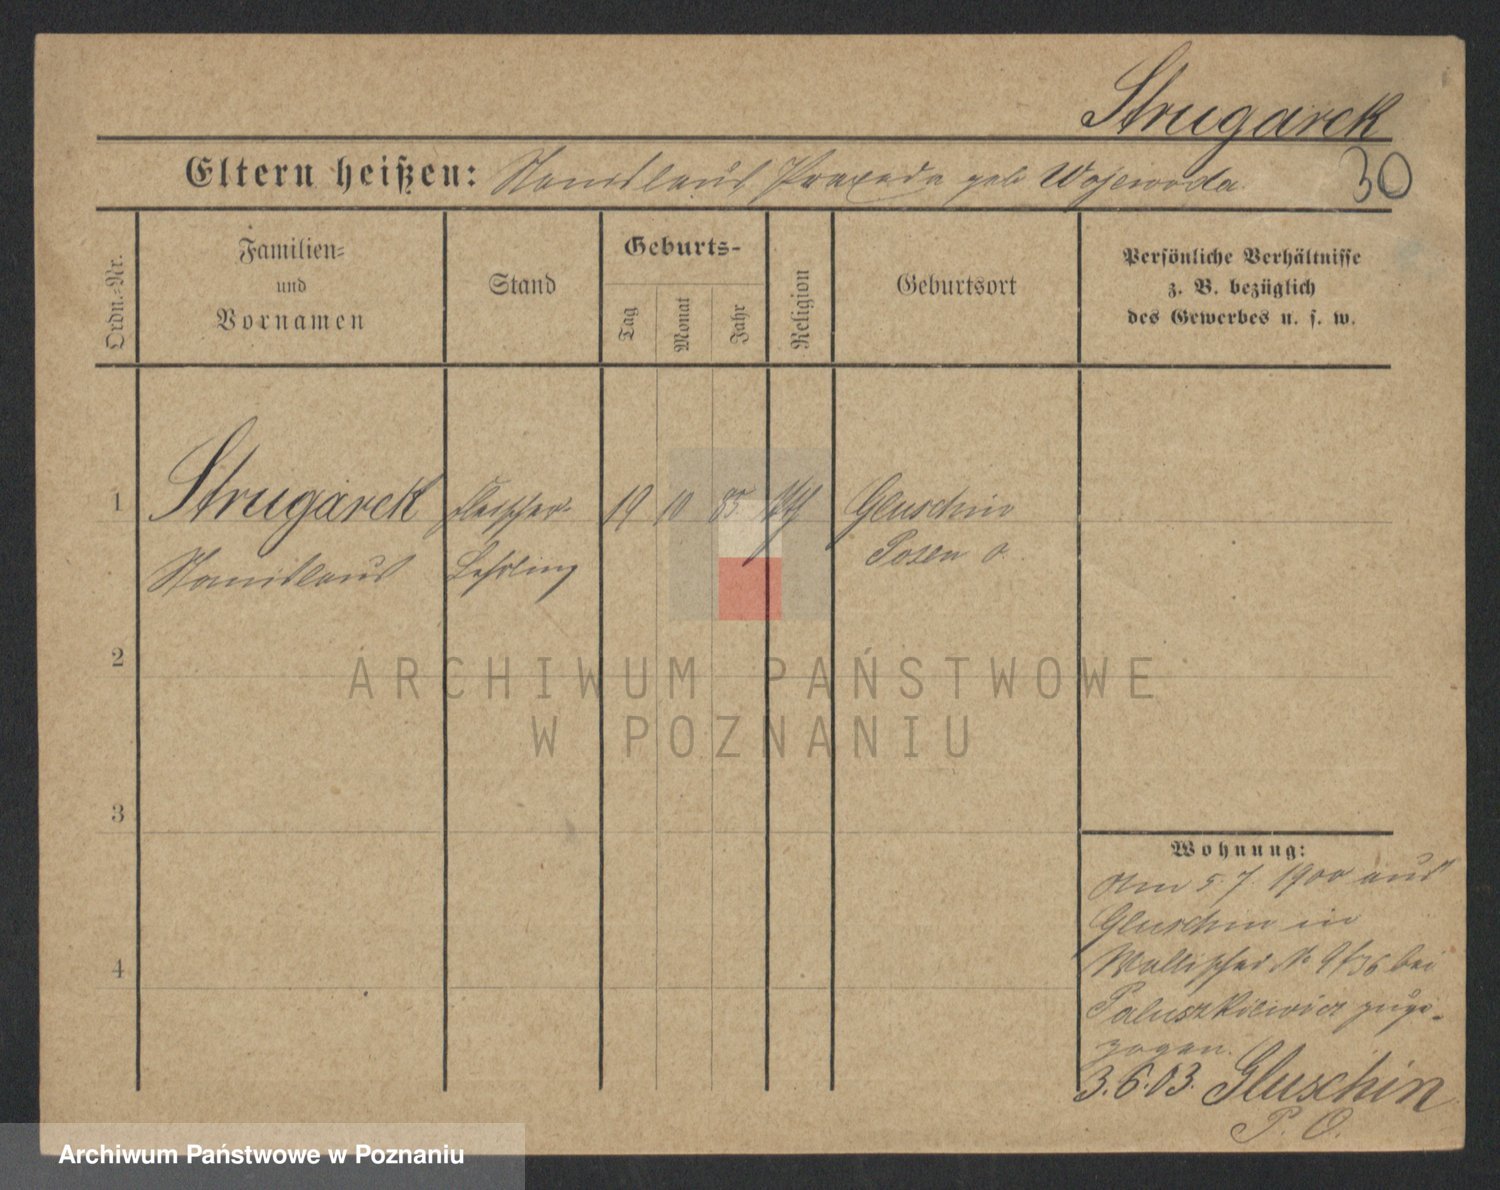 Strugarek
Eltern heißen: Stanislaus Praxeda geb Wojewoda
30
Ordn.-Nr.
Familien-
und
Vornamen
Stand
Geburts-
Tag
Monat
Jahr
Religion
Geburtsort
Persönliche Verhältnisse
z. B. bezüglich
des Gewerbes u. s. w.
1 Strugarek Fleischer- 19 10 85 kth Gluschin
Stanislaus Lehrling Posen O
2
3
4
ARCHIWUM PAŃSTWOWE
W POZNANIU
Wohnung:
Am 5. 7. 1900 aus
Gluschin in
Wallischei No bei
zuge-
zogen.
3.6.03. Gluschin
P. O.
Archiwum Państwowe w Poznaniu